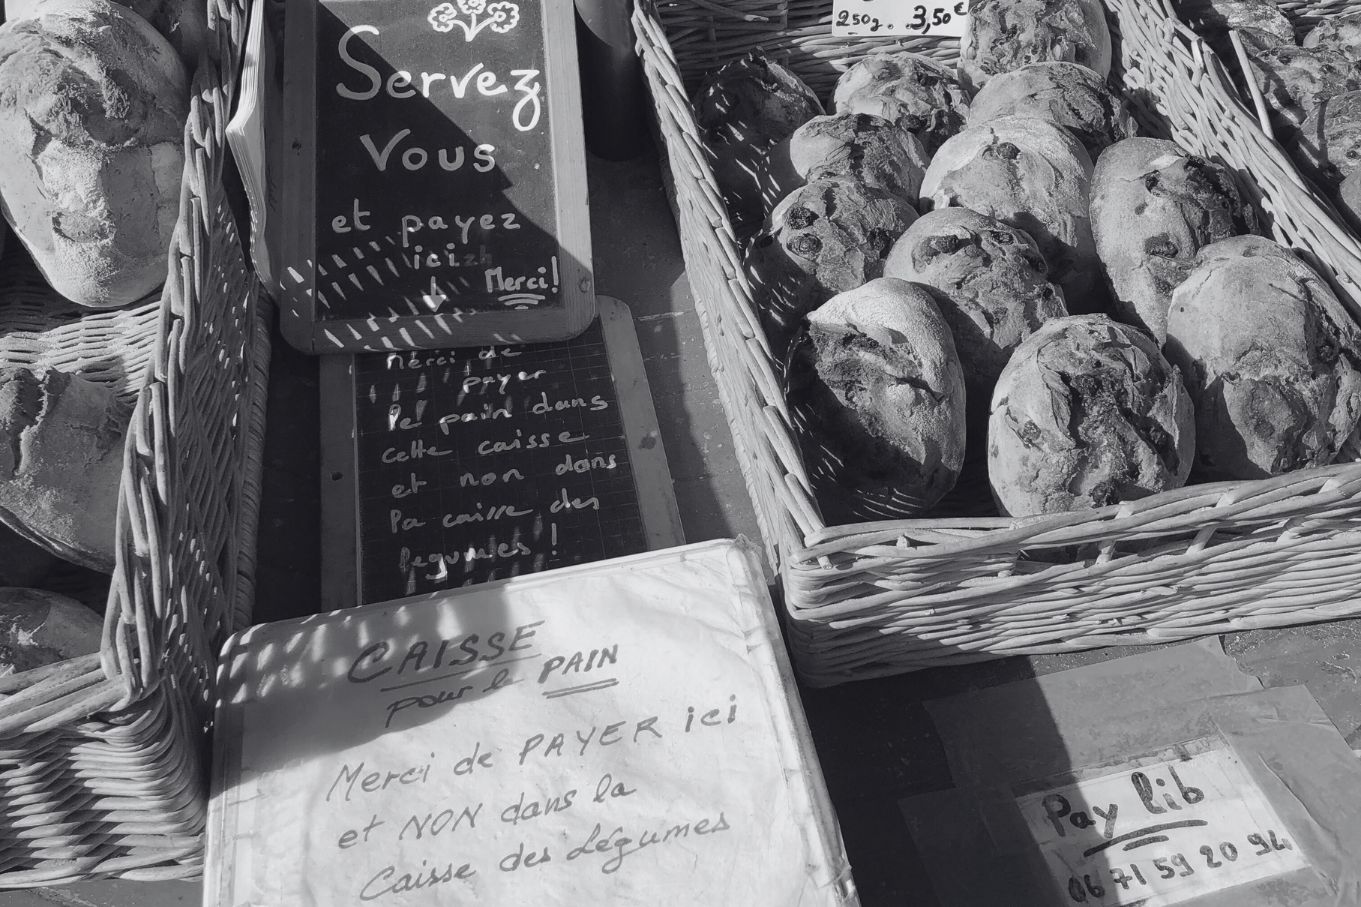 250g. 3,50€
Servez
Vous
et payez
ici
Merci!
merci de
payer
le pain dans
cette caisse
et non dans
la caisse des
legumes !
CAISSE
pour le PAIN
Merci de PAYER ici
et NON dans la
Caisse des Légumes
Pay lib
06 71 59 20 94